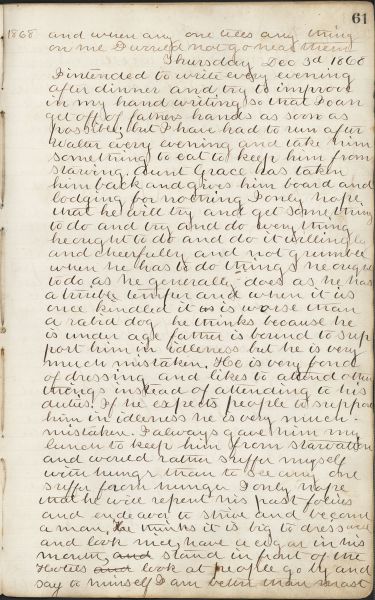 61
1868 and when any one uses any thing
on me I would not go near them
Thursday Dec 3d 1868
I intended to write every evening
after dinner and try to improve
in my hand writing so that I can
get off of fathers hands as soon as
possible; but I have had to run after
Walter every evening and take him
something to eat to keep him from
starving. Aunt Grace has taken
him back and gives him board and
lodging for nothing I only hope
that he will try and get some thing
to do and try and do every thing
he ought to do and do it willingly
and cheerfully and not grumble
when he has to do things he ought
to do as he generally does as he has
a terrible temper and when it is
once kindled it is worse than
a rabid dog he thinks because he
is under age father is bound to sup
port him in idleness but he is very
much mistaken. He is very fond
of dressing and likes to attend other
things instead of attending to his
duties. If he expects people to support
him in idleness he is very much
mistaken. I always gave him my
lunch to keep him from starvation
and would rather suffer myself
with hunger than to see any one
suffer from hunger I only hope
that he will repent his past follies
and endeavor to strive and become
a man. He thinks it is big to dress well
and look nice, have a cigar in his
mouth, and stand in front of the
Hotels and look at people go by and
say to himself I am better than most